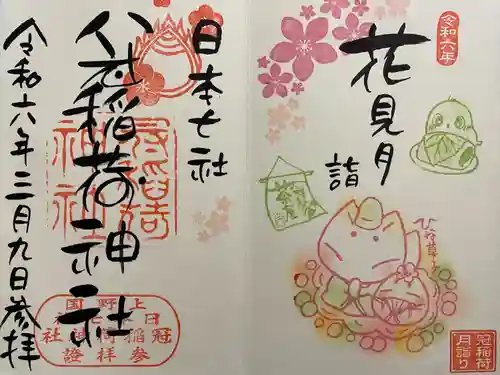 令和六年
花見月
詣
ひね草子
冠稲荷
月詣り
日本七社
冠稲荷神社
冠稲荷
神社
上野国
日本七社
冠稲荷神社
参拝證
令和六年三月九日参拝